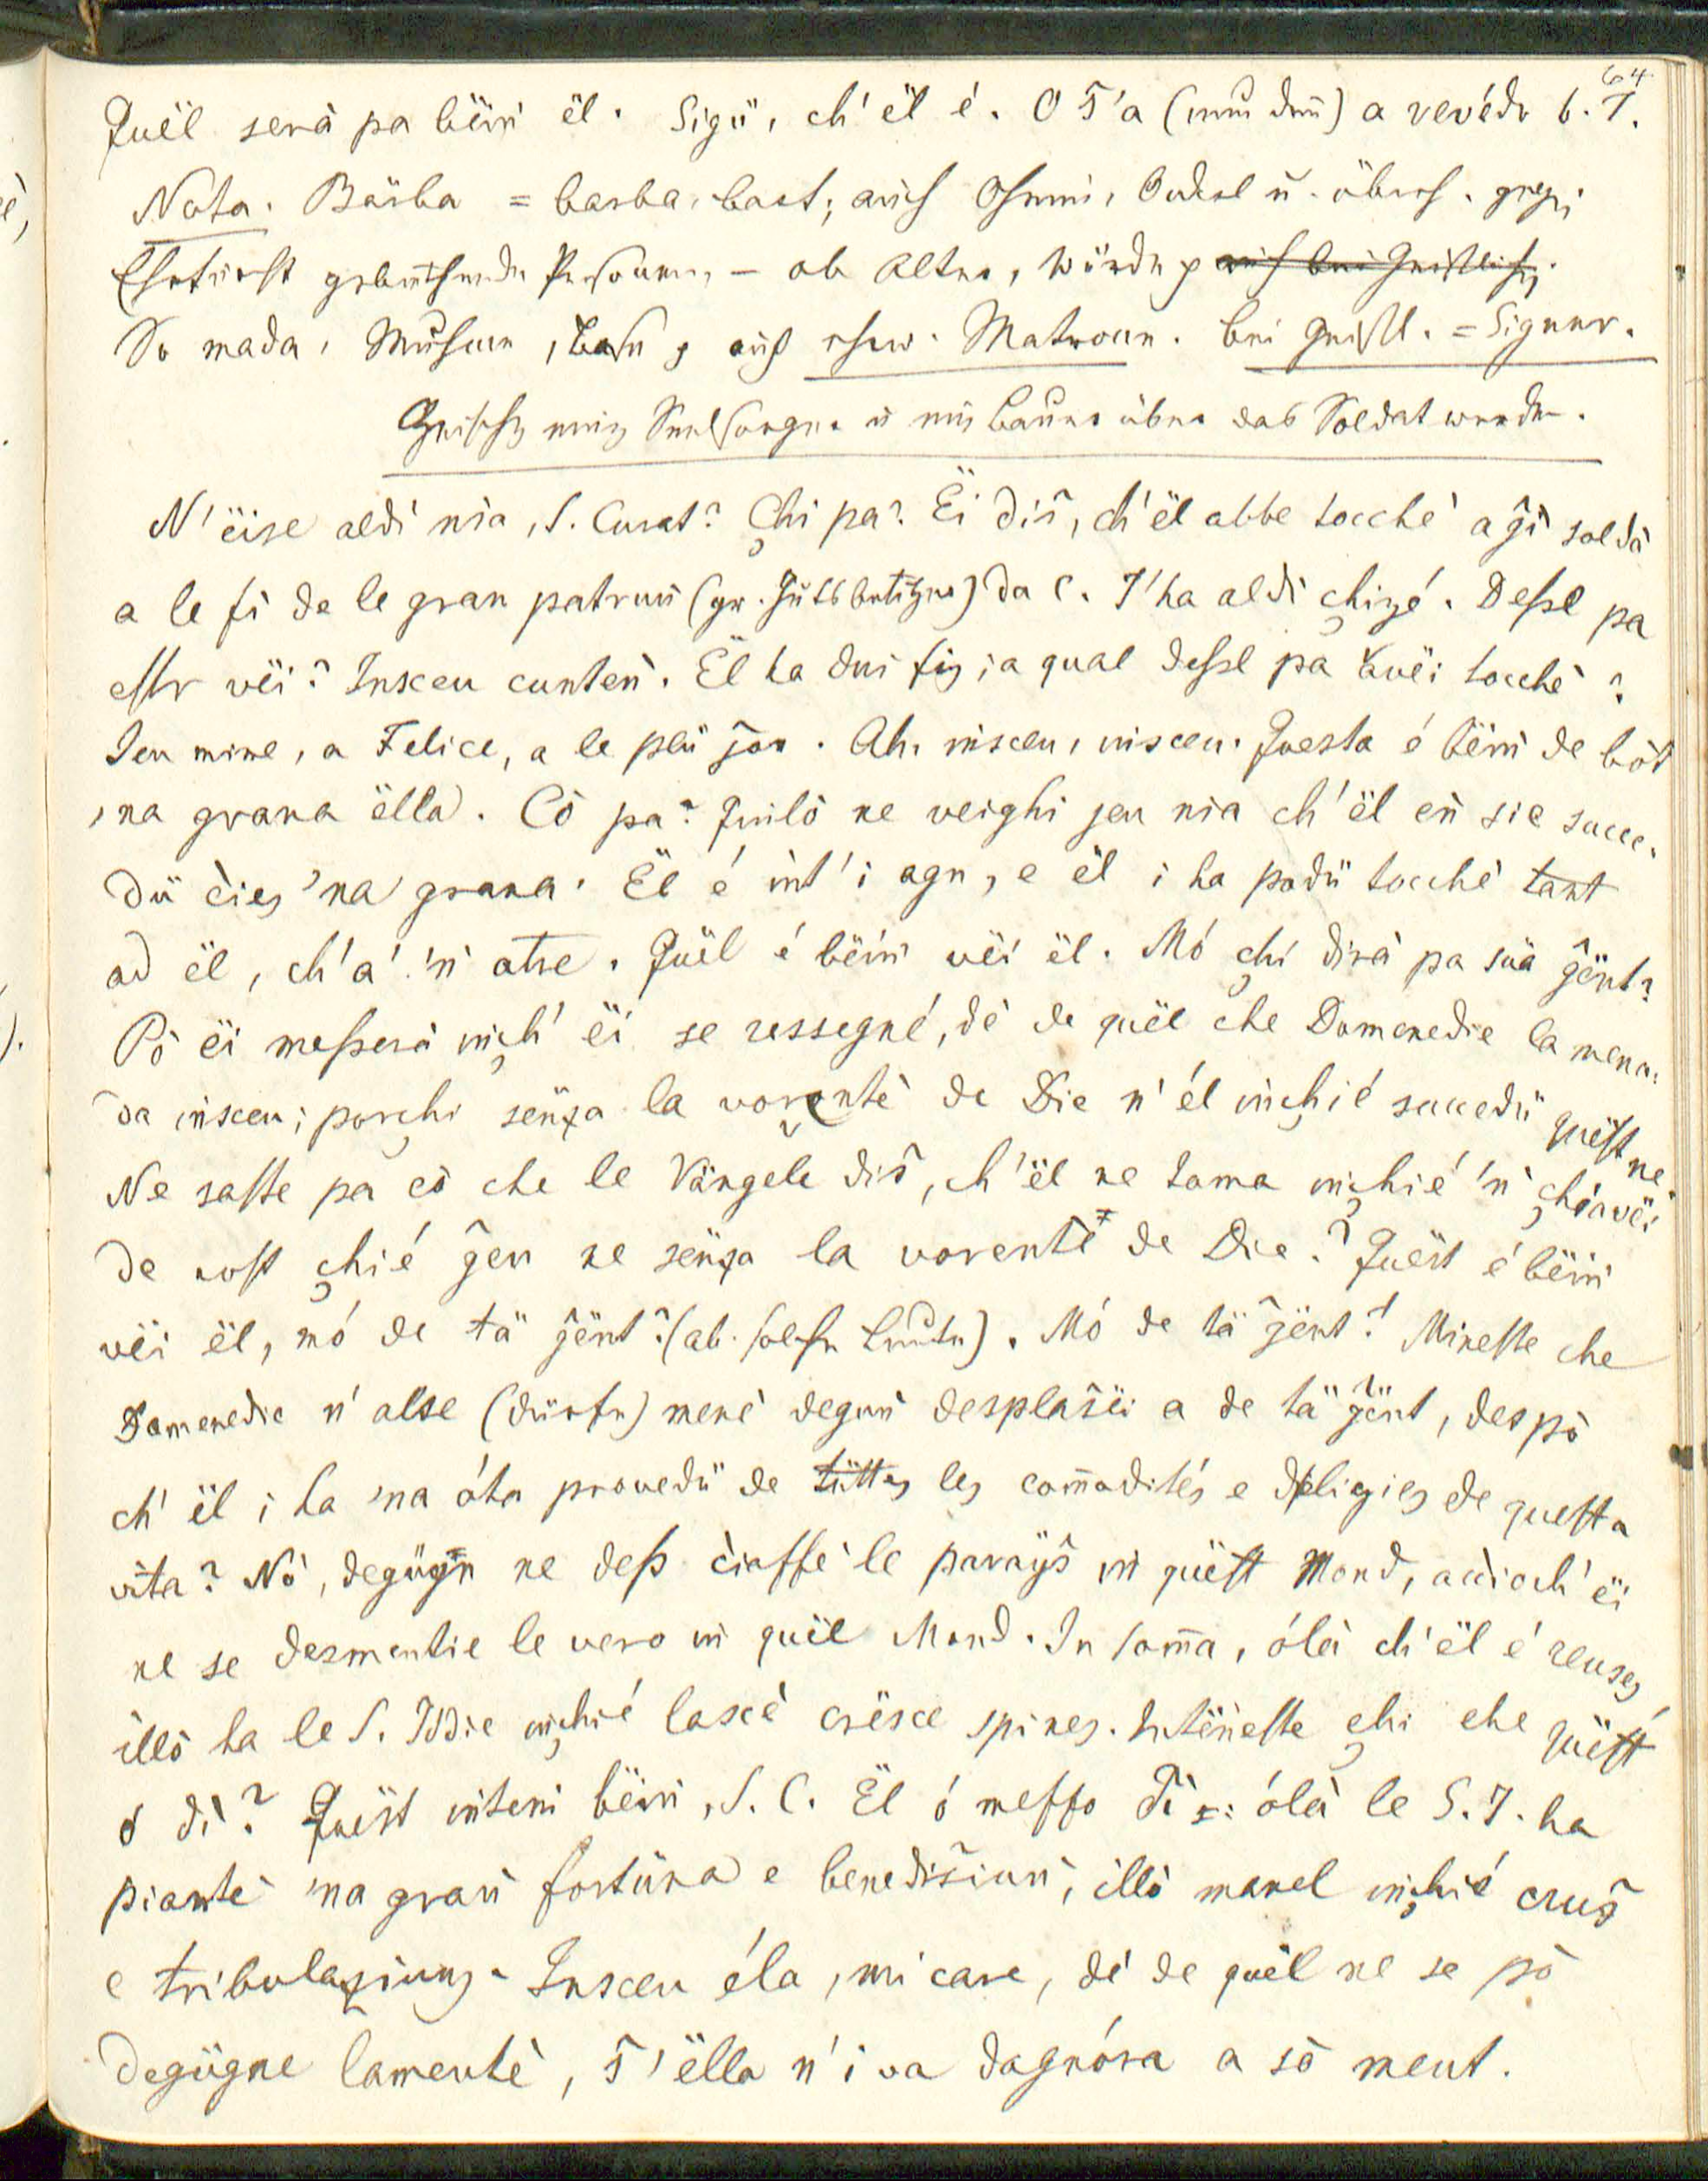 64
Quël serà pa bëiṅ ël. Sigü, ch'ël é. O S̄'a (nun dan̄) a revédr b. T.
Nota. Bärba = barba, bart; auch Oheim, Onkel u. überh. gegen
Ehrfurcht gebiethende Personen, – ob Alter, Würde p auch bei Geistlich.
So mada, Muhme, Base p auch ehrw. Matroun. bei Geistl. = Signur.
Gespräch eines Seelsorgers u eines Bauers über das Soldat werden.
N'ëise aldì nia, S. Curat? Chi pa? Ëi diŝ, ch'ël abbe tocché a ĝì soldà
a le fì de le gran patruṅ (gr. Gutsbesitzer) da C. I'ha aldì chizé. Deßel pa
esſr vëi? Insceu cunteṅ. Ël ha dui fiʒ; a qual deßel pa avëi tocché?
Ieu mine, a Felice, a le plü ĵon. Ah, insceu, insceu. Questa é bëiṅ de bòt
'na grama ëlla. Cò pa? Quilò ne veighi jeu nia ch'ël eṅ sie succe-
dü cieʒ 'na grama. Ël é int' i agn, e ël i ha podü tocché tant
ad ël, ch'a 'ṅ atre. Quël é bëiṅ vëi ël. Mó chi dirà pa süa ĝënt?
Pò ëi meßerà iṅch' ëi se ressegné, dè de quël che Domenedie la mena-
da insceu; porchi sënʒa la vorentè de Die n'él iṅchié succedü quëst ne.
Ne saſte pa cò che le Vängele diŝ, ch'ël ne toma iṅchié 'ṅ chiavëi
de vost chié ĝeu ne sënʒa la vorentè de Die? Quëst é bëiṅ
vëi ël, mó de tä ĝënt? (ab. solche Leute). Mó de tä ĝënt? Mineſte che
Domenedie n' alse (dürfen) mené deguṅ desplaŝëi a de tä ĝënt, despò
ch' ël i ha 'na óta provedü de tütteʒ leʒ com̄oditéʒ e deligieʒ de queſta
vita? Nò, degügn ne deß ciaffé le paraÿŝ iṅ quëſt Mond, acciocch' ëi
ne se desmentie le vero iṅ quël Mond. In som̄a, ólà ch'ël é reuseʒ,
illò ha le S. Iddie iṅchié lascé crësce spineʒ. Intëneſte chi che quëſt
ó dì? Quëst intëni bëiṅ, S. C. Ël ó meſſo dì: ólà le S. I. ha
pianté 'na graṅ fortüna e benedisiuṅ, illò manel iṅchié cruŝ
e tribulaʒiunʒ. Insceu éla, mi care, dè de quël ne se pò
degügne lamenté, ŝ'ëlla n' i va dagnóra a sò ment.